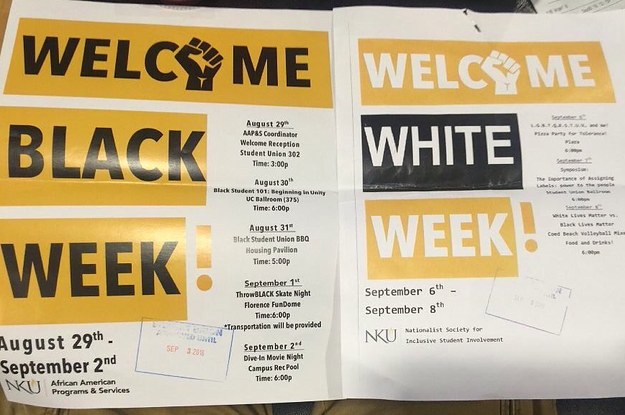 WELCOME
BLACK
WEEK!
August 29th
AAP&S Coordinator
Welcome Reception
Student Union 302
Time: 3:00p
August 30th
Black Student 101: Beginning in Unity
UC Ballroom (375)
Time: 6:00p
August 31st
Black Student Union BBQ
Housing Pavilion
Time: 5:00p
September 1st
ThrowBLACK Skate Night
Florence FunDome
Time:6:00p
*Transportation will be provided
September 2nd
Dive-In Movie Night
Campus Rec Pool
Time: 6:00p
August 29th -
September 2nd
NKU African American
Programs & Services
SEP 3
WELCOME
WHITE
WEEK!
September 6th
Plaza Party for Tolerance!
Plaza
6:00pm
September 7th
Symposium:
The Importance of Assigning
Labels: power to the people
Student Union Ballroom
6:00pm
September 8th
White Lives Matter vs.
Black Lives Matter
Coed Beach Volleyball
Food and Drinks!
6:00pm
September 6th -
September 8th
NKU Nationalist Society for
Inclusive Student Involvement